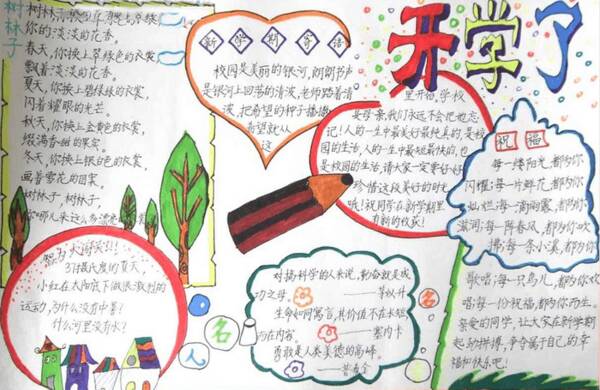 开学了
树林子
你的淡淡的花香。
春天,你换上翠绿色的衣裳,
飘着淡淡的花香。
夏天,你换上碧绿的衣裳,
闪着耀眼的光芒。
秋天,你换上金黄色的衣裳,
缀满香甜的果实。
冬天,你换上银色的衣裳,
画着雪花的图案。
树林子,树林子,
新学期寄语
校园是美丽的银河,朗朗书声
是银河上回荡的清波,老师踏着清
波,把希望的种子播撒,
希望就从
这
里开始,学校
是母亲,我们永远不会把她忘
记!人的一生中最美好最快真的,是校
园的生活,人的一生中最短最快的,也
是校园的生活,请大家一定要好好
珍惜这段美好的时光
哦!祝同学在新学期里
有新的收获!
祝福
每一缕阳光,都为你
闪耀;每一片鲜花,都为你
灿烂;每一滴雨露,都为你
滋润;每一阵春风,都为你吹
拂;每一条小溪,都为你
歌唱;每一只鸟儿,都为你欢
唱;每一份祝福,都为你而生。
亲爱的同学,让大家在新学期
起劲拼搏,争夺属于自己的幸
福和快乐吧!
智力大闯关!!!
37摄氏度的夏天,
小红在太阳底下做很激烈的
运动,为什么没有中暑?
什么河里没有水?
名人名
对搞科学的人来说,勤奋就是成
功之母。——茅以升
生命如同寓言,其价值不在长短
而在内容。——塞内卡
勇敢是人类美德的高峰。
——普希金